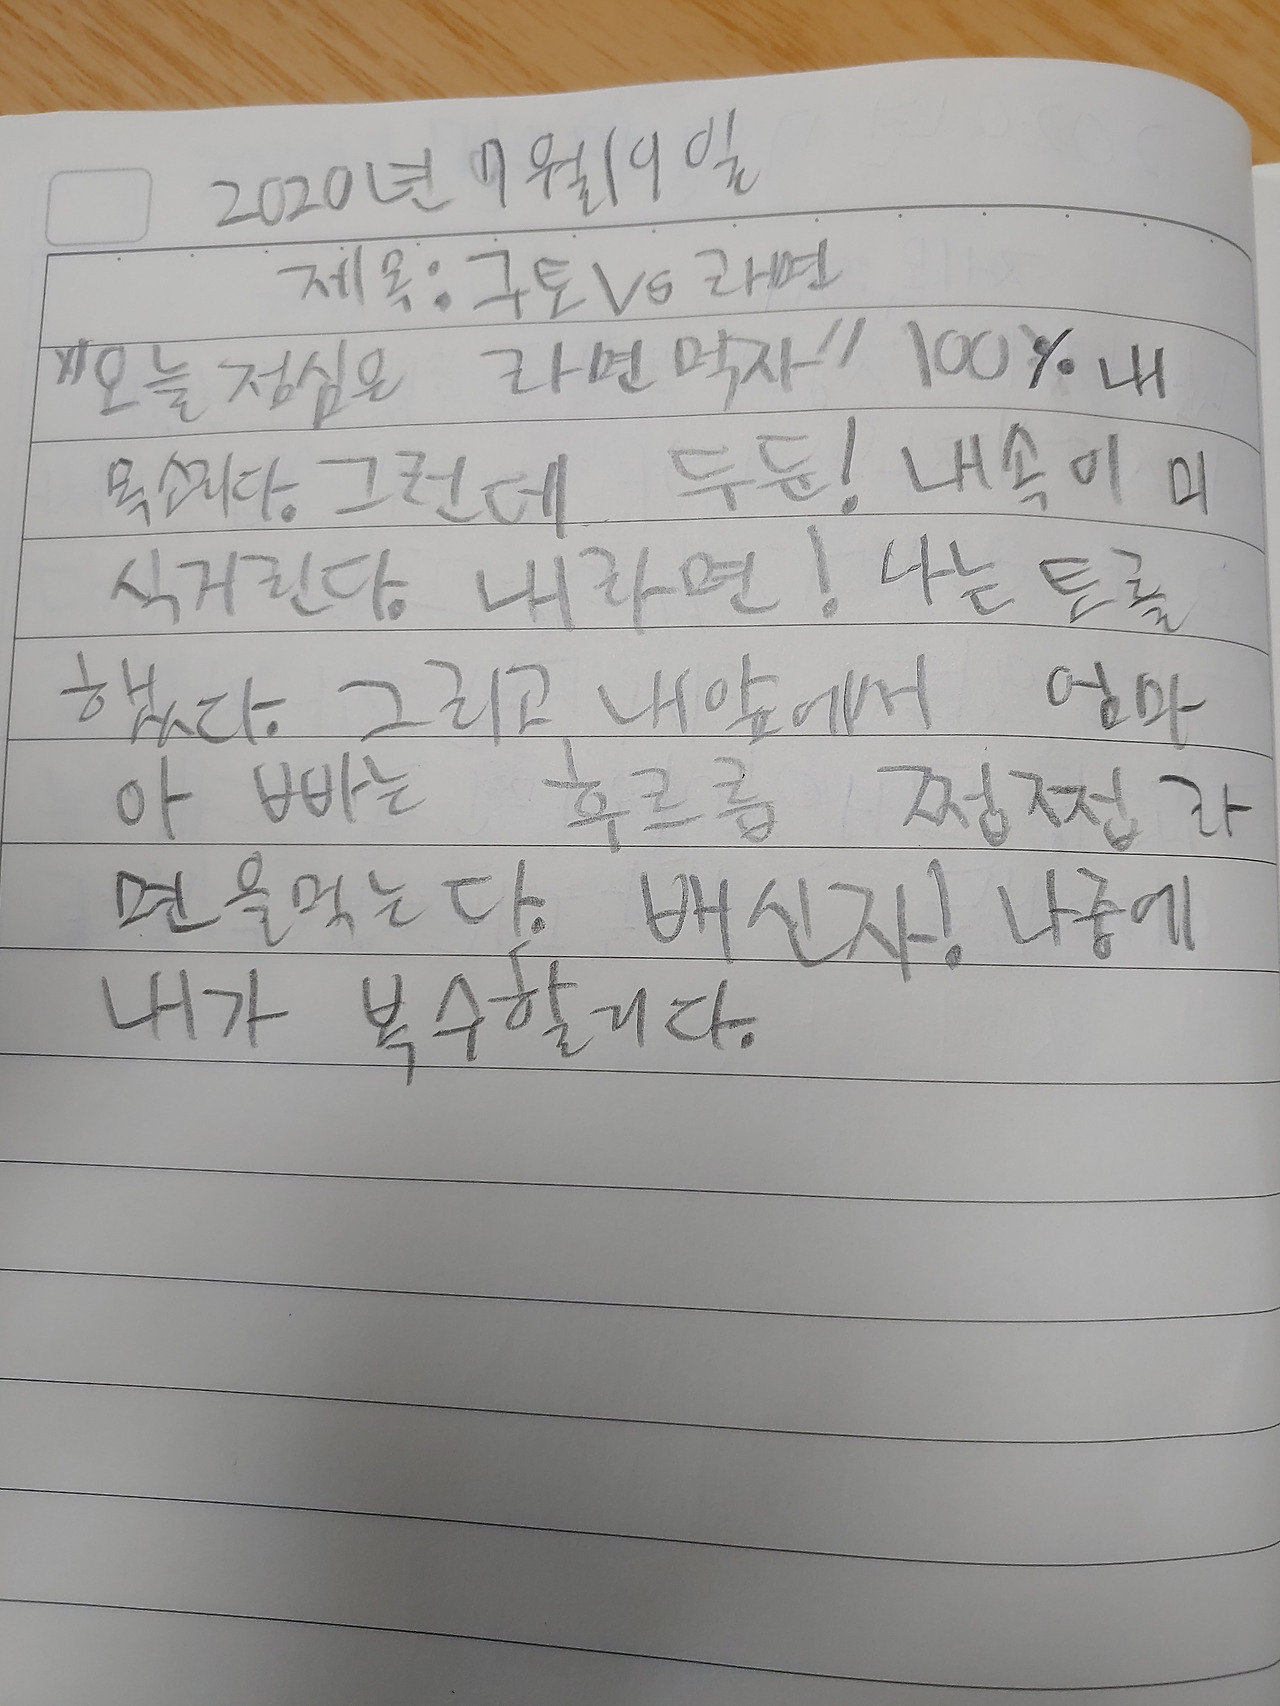 2020년 7월 19일
제목: 구토 Vs 라면
"오늘 점심은 라면 먹자" 100% 내
목소리다. 그런데 두둔! 내 속이 미
식거린다. 내 라면! 나는 토를
했다. 그리고 내 앞에서 엄마
아빠는 후르릅 쩝쩝 라
면을 먹는다. 배신자! 나중에
내가 복수할리다.